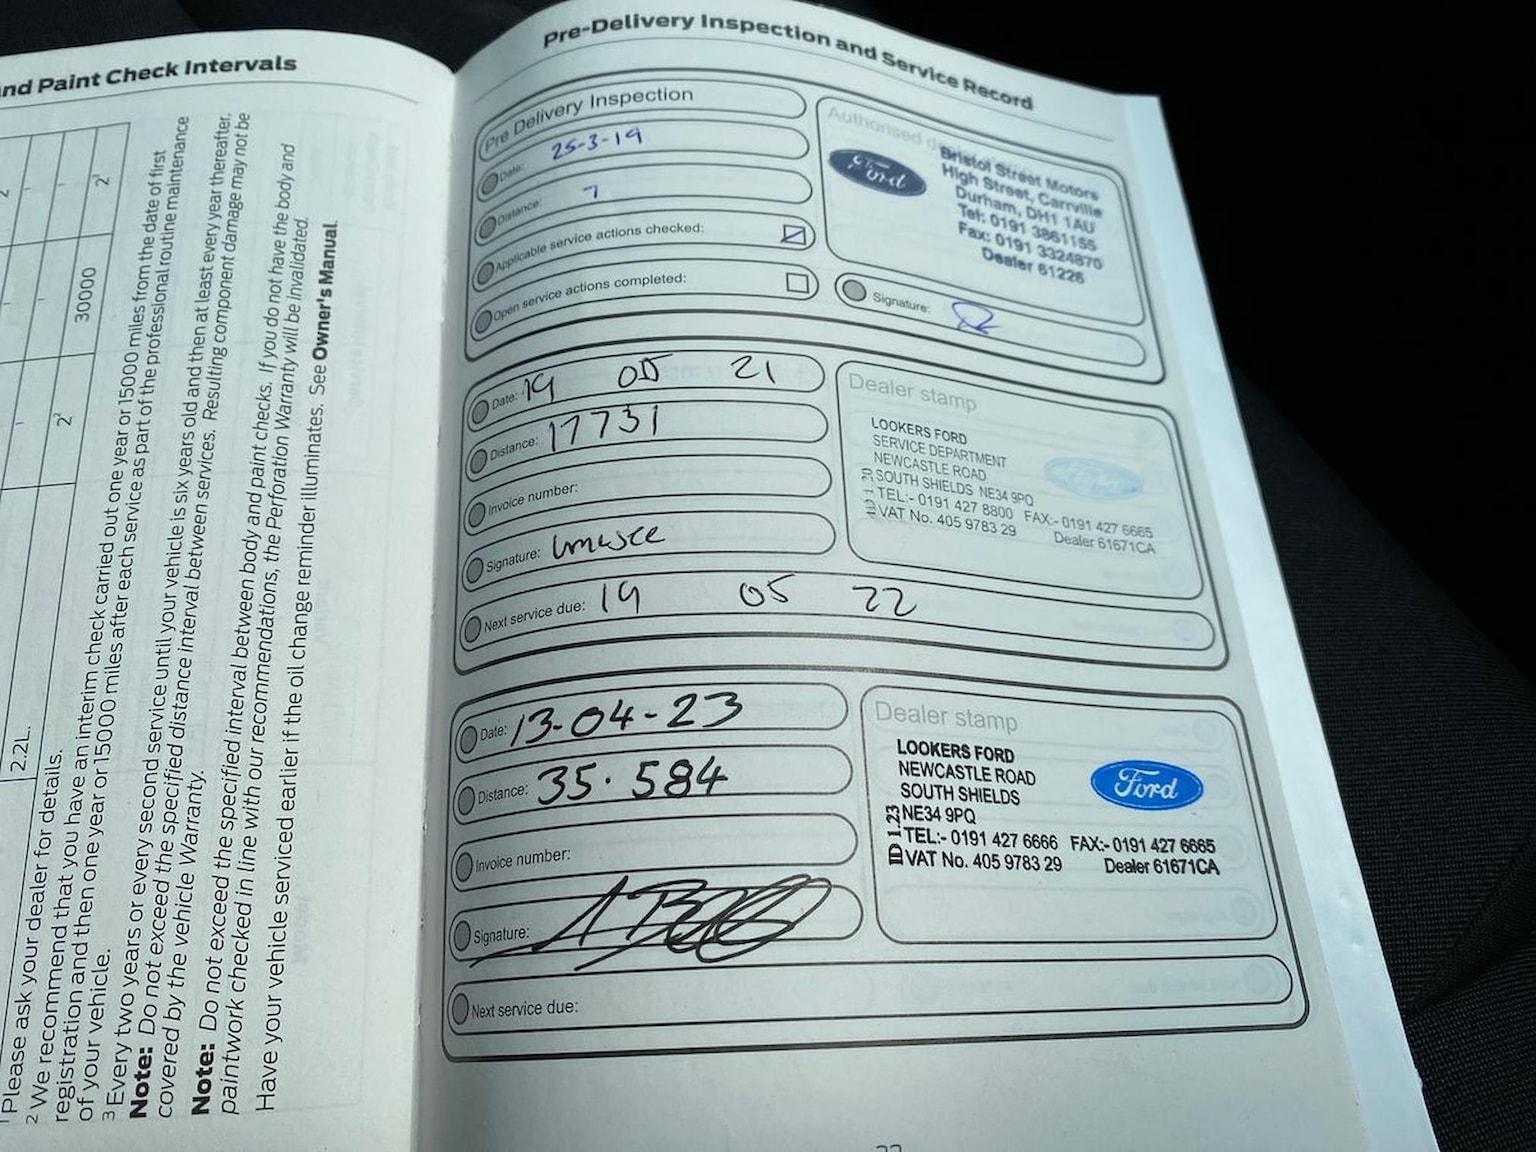 and Paint Check Intervals
2
-
-
2²
-
-
30000
-
2²
2.2L.
¹ Please ask your dealer for details.
² We recommend that you have an interim check carried out one year or 15000 miles from the date of first
registration and then one year or 15000 miles after each service as part of the professional routine maintenance
of your vehicle.
³ Every two years or every second service until your vehicle is six years old and then at least every year thereafter.
Note: Do not exceed the specified distance interval between services. Resulting component damage may not be
covered by the vehicle Warranty.
Note: Do not exceed the specified interval between body and paint checks. If you do not have the body and
paintwork checked in line with our recommendations, the Perforation Warranty will be invalidated.
Have your vehicle serviced earlier if the oil change reminder illuminates. See Owner's Manual.
Pre-Delivery Inspection and Service Record
Pre Delivery Inspection
Date: 25-3-19
Distance: 7
Applicable service actions checked:
Open service actions completed:
Authorised
Ford
Bristol Street Motors
High Street, Carrville
Durham, DH1 1AU
Tel: 0191 3861155
Fax: 0191 3324870
Dealer 61226
Signature:
Date: 19 05 21
Distance: 17731
Invoice number:
Signature:
Next service due: 19 05 22
Dealer stamp
LOOKERS FORD
SERVICE DEPARTMENT
NEWCASTLE ROAD
SOUTH SHIELDS NE34 9PQ
TEL:- 0191 427 8800 FAX:- 0191 427 6665
VAT No. 405 9783 29 Dealer 61671CA
Ford
Date: 13-04-23
Distance: 35.584
Invoice number:
Signature:
Next service due:
Dealer stamp
LOOKERS FORD
NEWCASTLE ROAD
SOUTH SHIELDS
NE34 9PQ
TEL:- 0191 427 6666 FAX:- 0191 427 6665
VAT No. 405 9783 29 Dealer 61671CA
ID 1.23
Ford